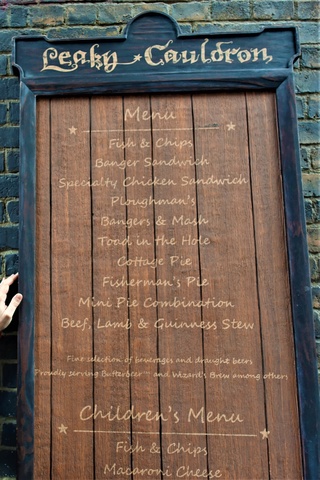 Leaky Cauldron
Menu
Fish & Chips
Banger Sandwich
Specialty Chicken Sandwich
Ploughman's
Bangers & Mash
Toad in the Hole
Cottage Pie
Fisherman's Pie
Mini Pie Combination
Beef, Lamb & Guinness Stew
Fine selection of beverages and draught beers
Proudly serving Butterbeer™ and Wizard's Brew among others
Children's Menu
Fish & Chips
Macaroni Cheese